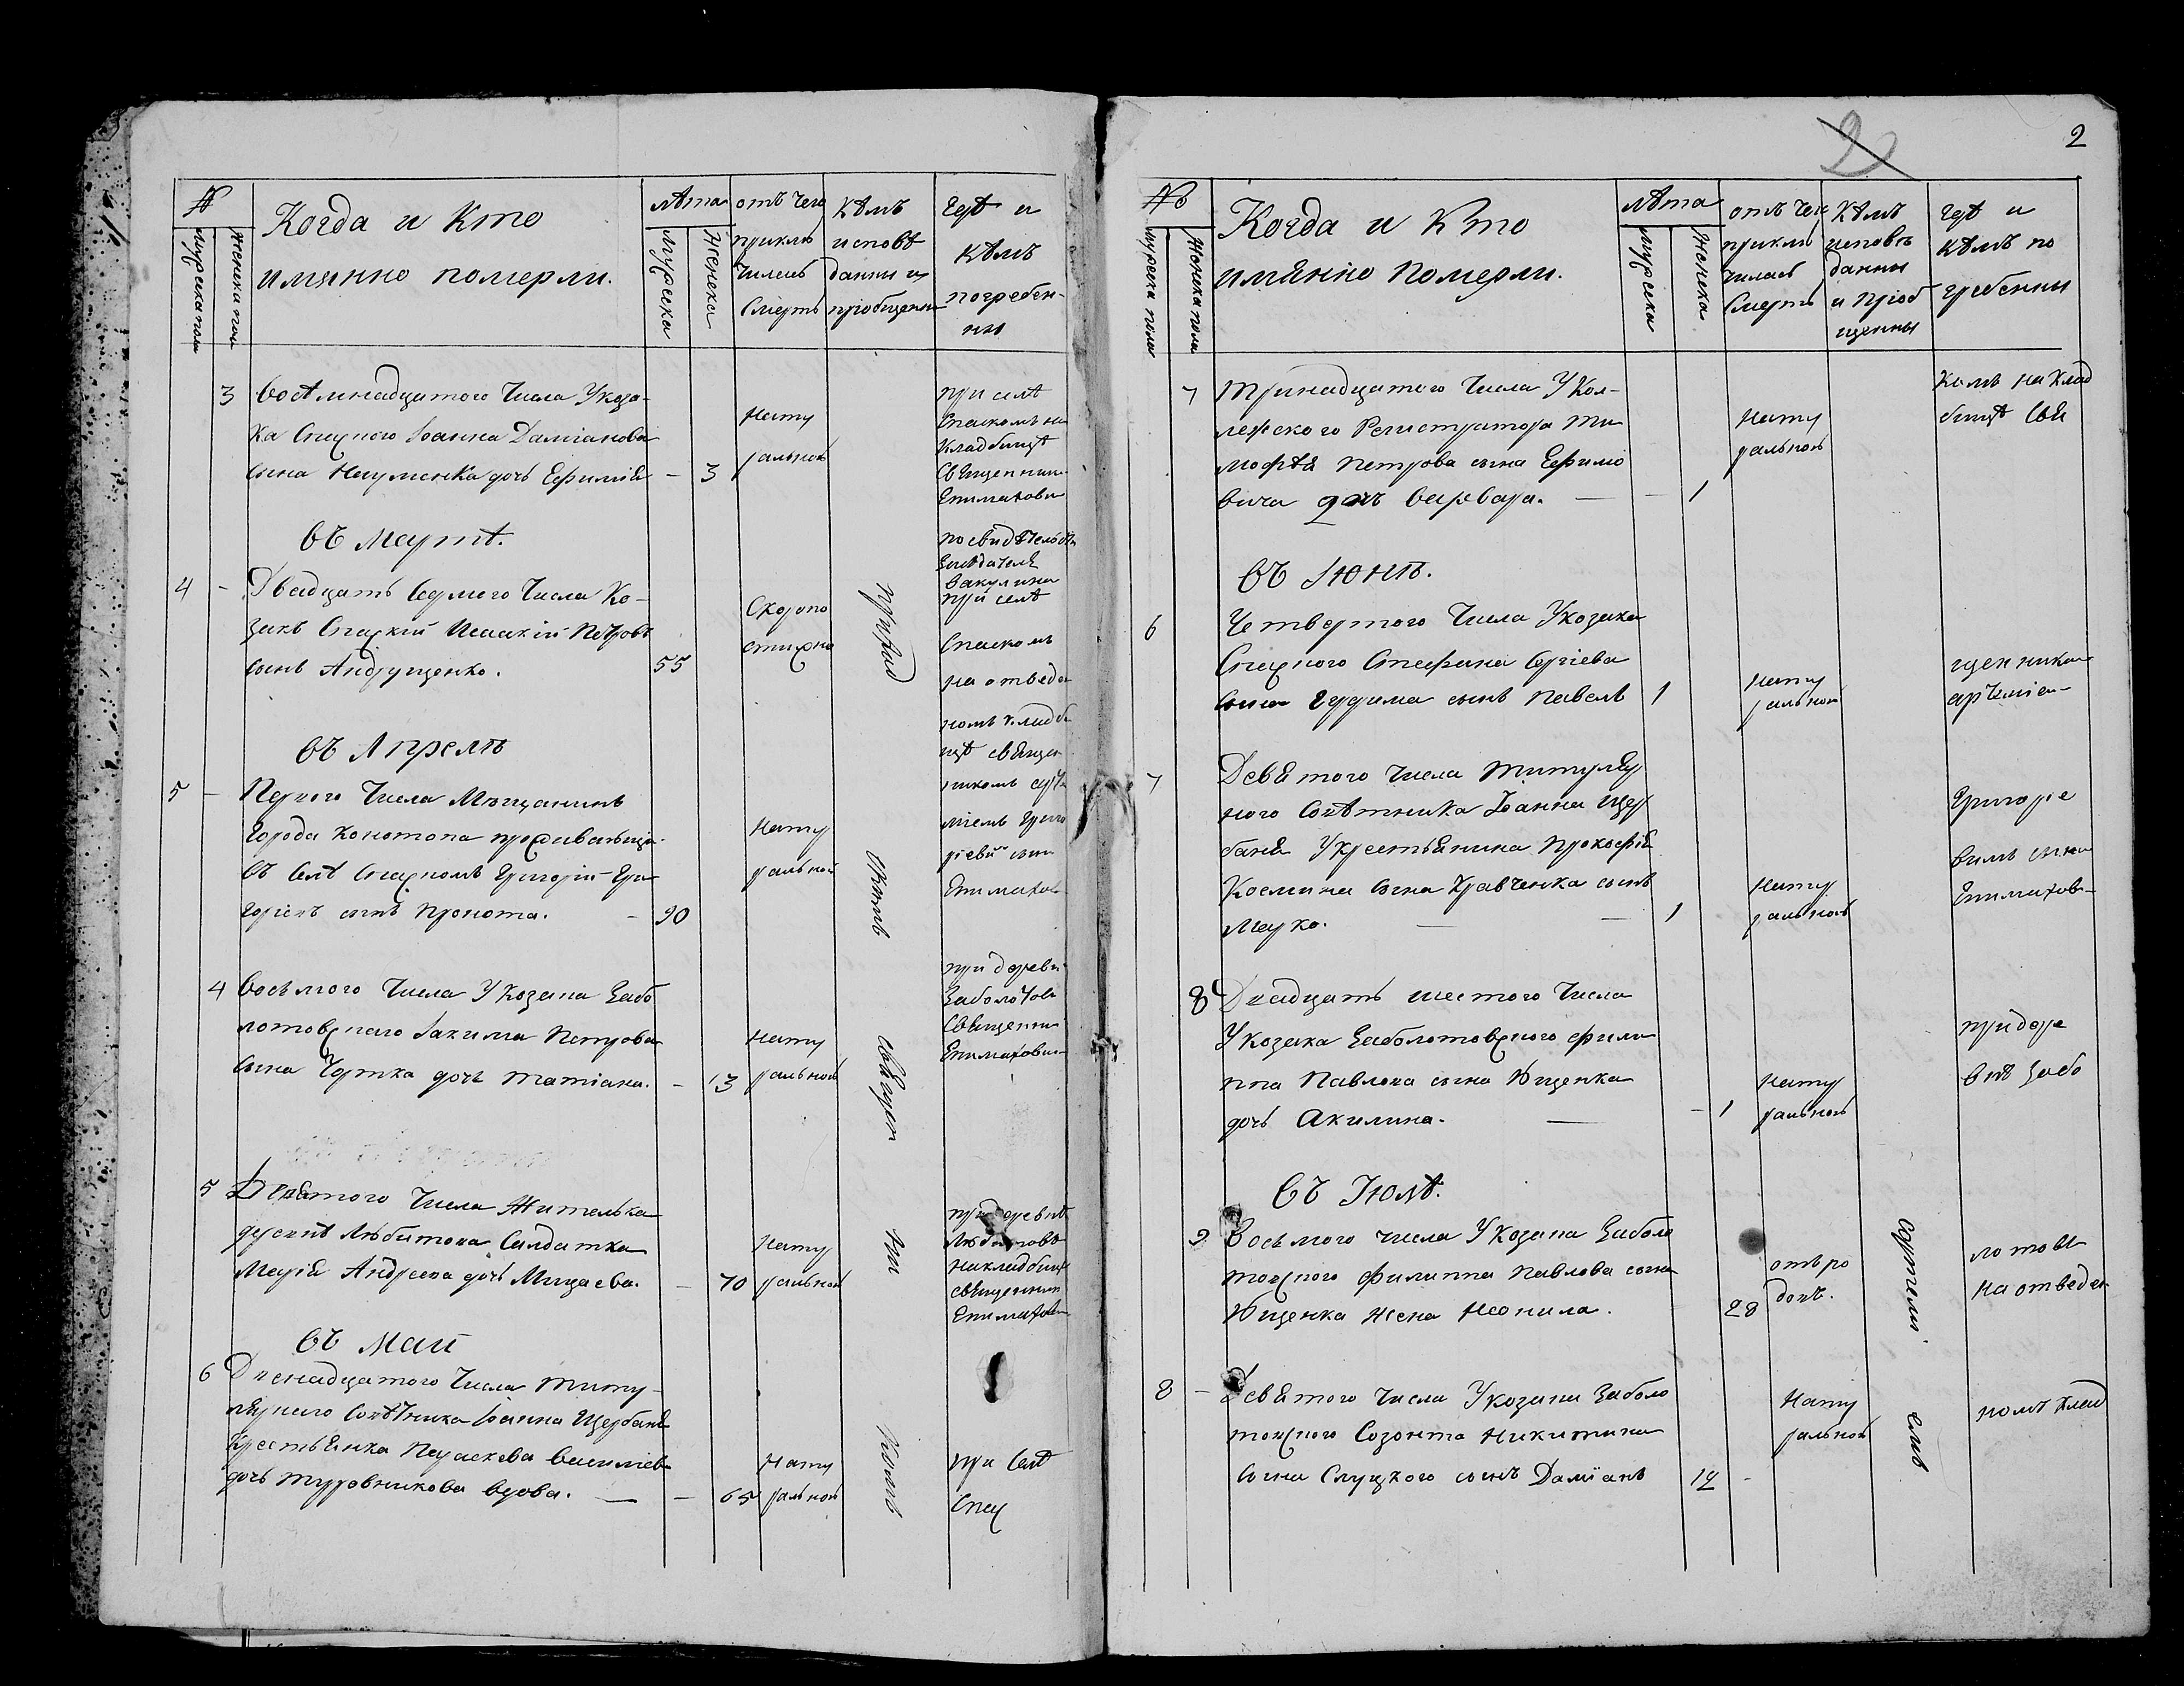 №
Мужеска пола
Женска пола
Когда и Кто
имянно померли.
лѣта
Мужеска
Женска
отъ чего
приклю
чилась
Смерть
кѣмъ
исповѣ
данны и
пріобщены
гдѣ и
кѣмъ
погребен-
ны
3
Восѣмнадцатого Числа У коза-
ка Спаского Іоанна Даміанова
сына Науменка дочь Ефимія
3
Нату
ральной
при селѣ
Спаскомъ на
Кладбищѣ
Священник
Епимахови
Въ Мартѣ.
4
Двадцать Седмого Числа Ко-
закъ Спаскій Исаакій Петровъ
сынъ Андрущенко.
55
Скоропо
стижно
при селѣ
Спаскомъ
на отведен
номъ кладби
щѣ священ
никомъ
Епимахов
Въ Апрелѣ
5
Первого Числа Мѣщанинъ
Города Конотопа проживающи
въ Селѣ Спаскомъ Григорій Гри
горіевъ сынъ Пронота.
90
Нату
ральной
4
Восьмого Числа У козака Забо
лотовского Іакима Петрова
сына Чортка дочь Татіана.
13
Нату
ральной
при деревн
Заболотов
Священни
Епимахови
5
Девятого Числа Жителька
деревнѣ Любитова Салдатка
Марія Андреева дочь Мицаева.
70
Нату
ральной
при деревнѣ
Любитовѣ
на кладбищ
священник
Епимахов
Въ Маи
6
Двенадцатого Числа Титу-
лярного Совѣтника Іоанна Щербаня
Крестьянка Параскева Василіев
дочь Туровникова вдова.
65
Нату
ральной
при Селѣ
Спас
приход
скимъ
священ
ни
комъ
2
№
Мужеска пола
Женска пола
Когда и Кто
имянно Померли.
лѣта
Мужеска
Женска
отъ чего
приклю
чилась
Смерть
Кѣмъ
исповѣ
данны
и пріоб
щенны
гдѣ и
кѣмъ по
гребенны
7
Тринадцатого Числа У Кол-
лежского Регистратора Ти
мофѣя Петрова сына Ефимо
вича дочь Варвара.
1
Нату
ральной
комъ на Клад
бищѣ Свя
Въ Іюнѣ.
6
Четвертого Числа У козака
Спаского Стефана Сергіева
сына Гудима сынъ Павелъ
1
Нату
ральной
щенником
7
Девятого Числа Титуляр
ного Совѣтника Іоанна Щер
баня У Крестьянина Прокофія
Космина сына Кравченка сынъ
Марко.
1
Нату
ральной
Григоріе
вимъ сыно
Епимахов-
8
Двадцать шестого Числа
У козака Заболотовского Фили
ппа Павлова сына Ющенка
дочь Акилина.
1
Нату
ральной
при дере
внѣ Забо
Въ Іюлѣ.
9
Восьмого числа У козака Заболо
товского Филиппа Павлова сына
Ющенка жена Неонила.
28
отъ ро
довъ.
лотовѣ
на отведен
8
Девятого Числа У козака Заболо
товского Созонта Никитина
Сына Слуцкого сынъ Даміанъ
12
Нату
ральной
номъ клад